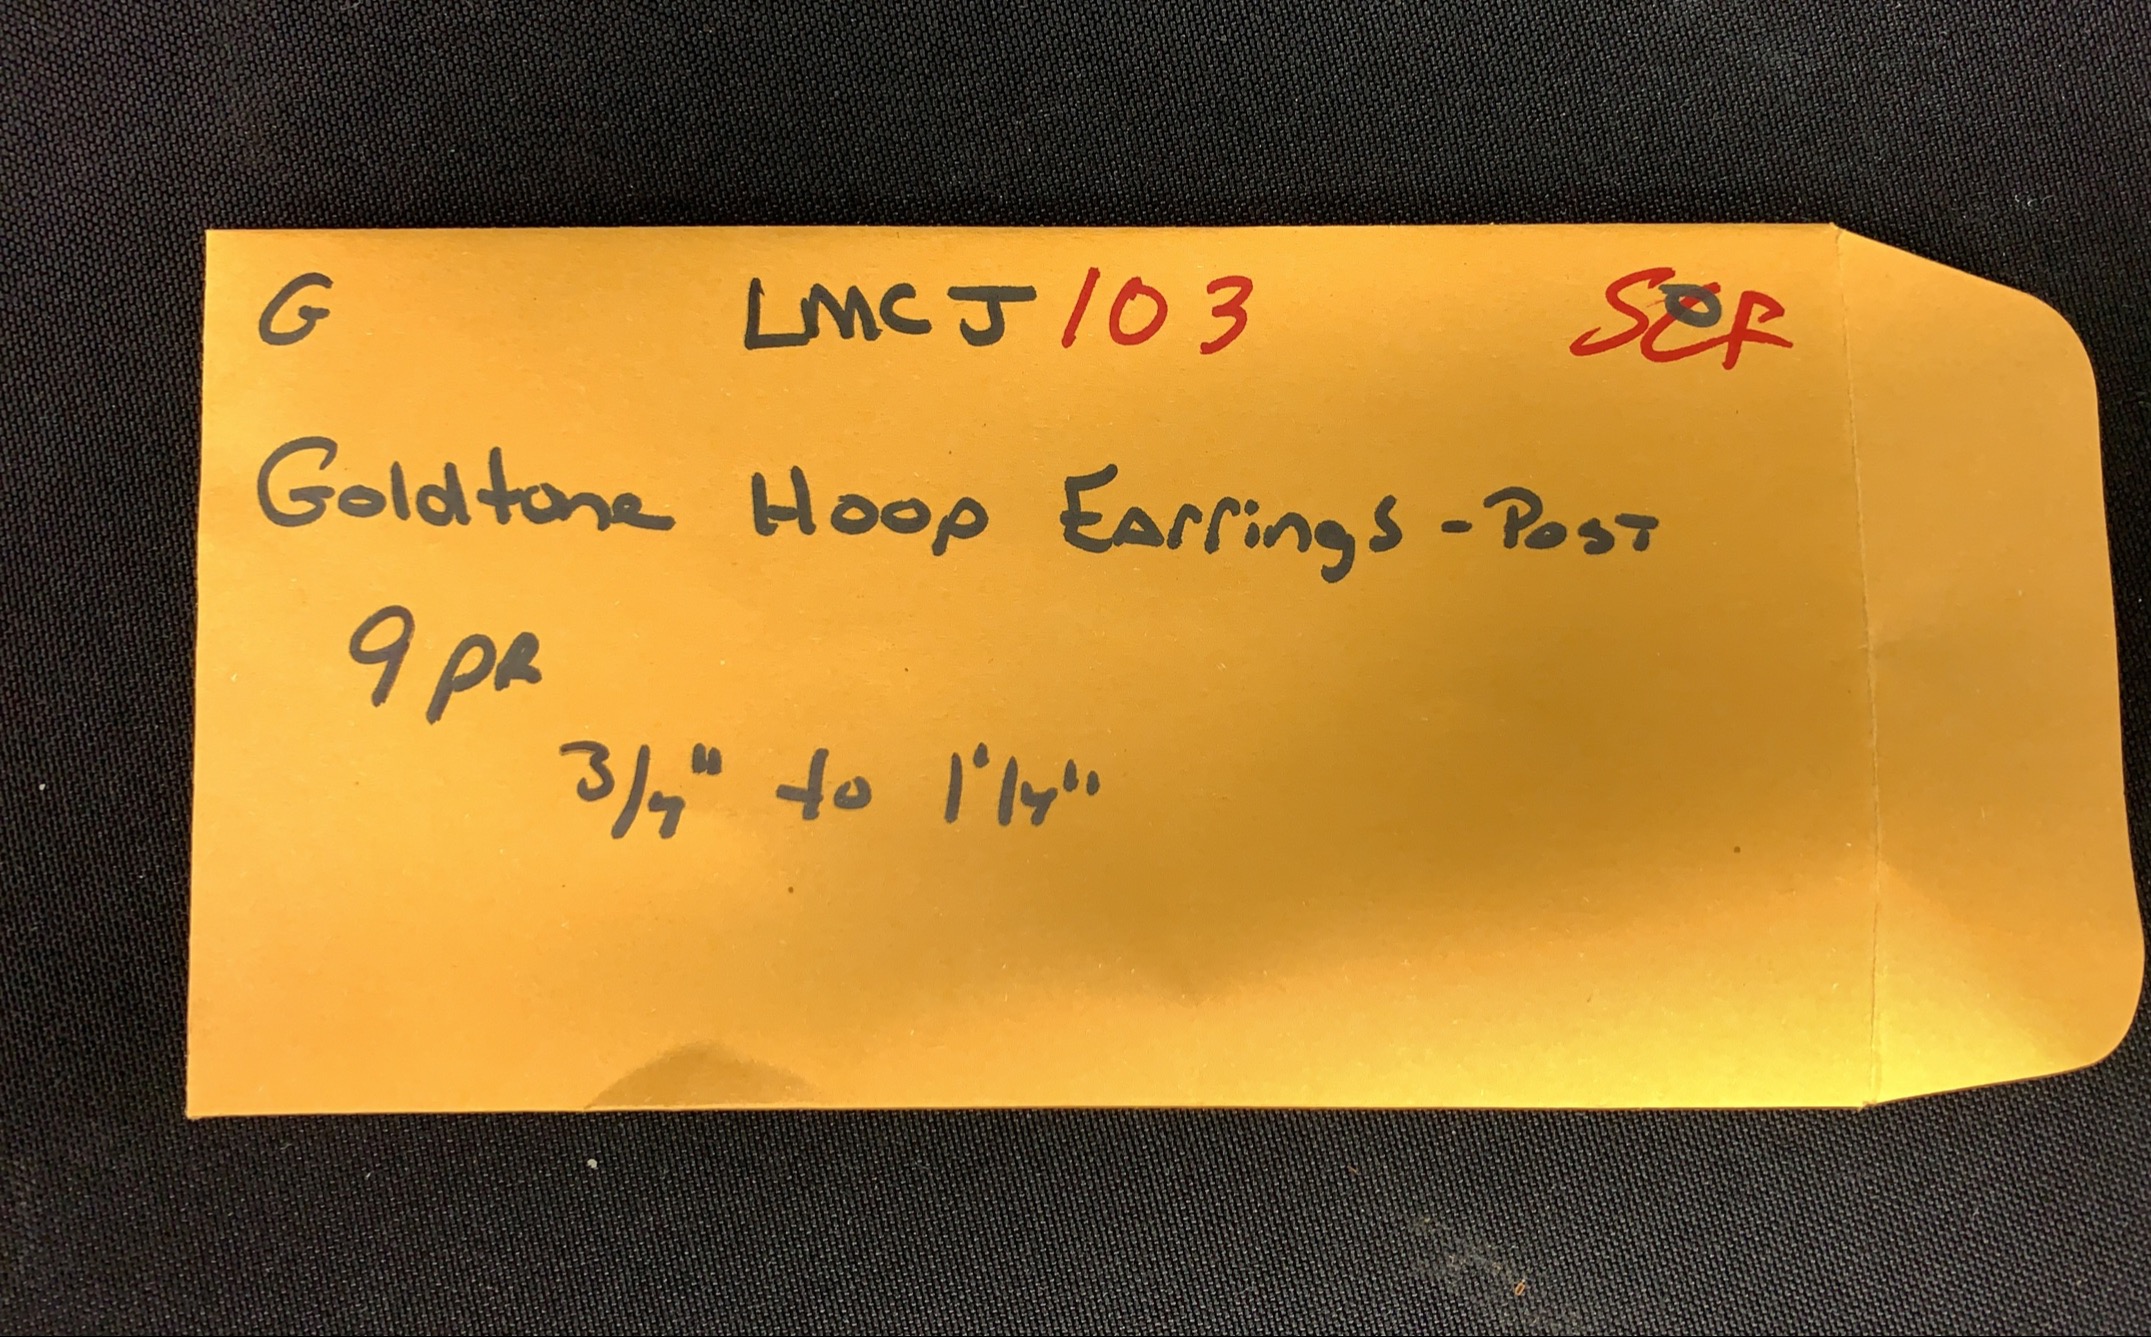 G LMCJ103
Goldtone Hoop Earrings - Post
9 PR
3/4" to 1 1/4"